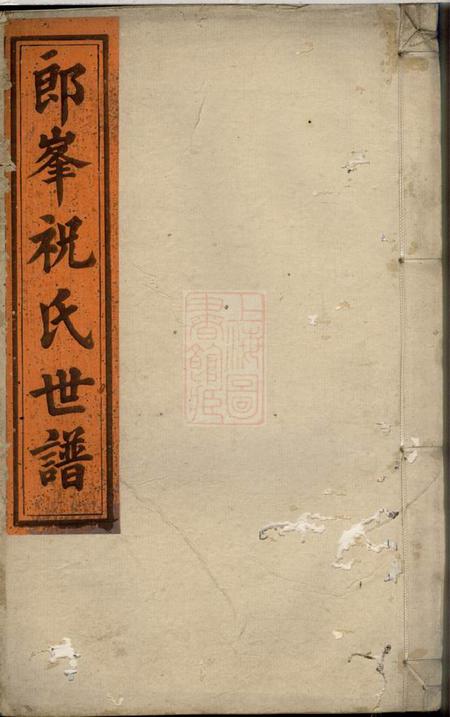 郎峯祝氏世譜
上海圖
書館臧